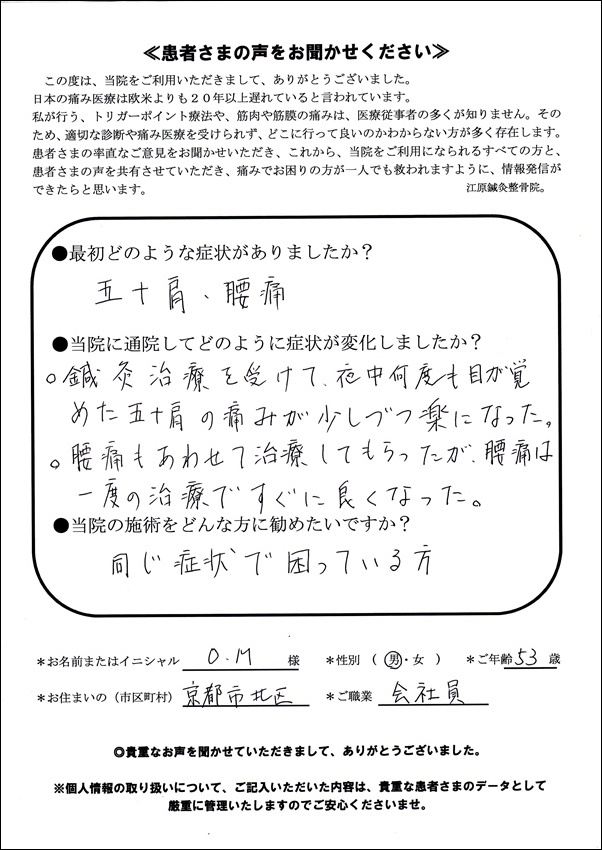 ≪患者さまの声をお聞かせください≫
この度は、当院をご利用いただきまして、ありがとうございました。
日本の痛み医療は欧米よりも２０年以上遅れていると言われています。
私が行う、トリガーポイント療法や、筋肉や筋膜の痛みは、医療従事者の多くが知りません。その
ため、適切な診断や痛み医療を受けられず、どこに行って良いのかわからない方が多く存在します。
患者さまの率直なご意見をお聞かせいただき、これから、当院をご利用になられるすべての方と、
患者さまの声を共有させていただき、痛みでお困りの方が一人でも救われますように、情報発信が
できたらと思います。 江原鍼灸整骨院。
●最初どのような症状がありましたか？
五十肩、腰痛
●当院に通院してどのように症状が変化しましたか？
○鍼灸治療を受けて、夜中何度も目が覚
めた五十肩の痛みが少しづつ楽になった。
○腰痛もあわせて治療してもらったが、腰痛は
一度の治療ですぐに良くなった。
●当院の施術をどんな方に勧めたいですか？
同じ症状で困っている方
＊お名前またはイニシャル O.M 様 ＊性別（男・女） ＊ご年齢 53 歳
＊お住まいの（市区町村） 京都市北区 ＊ご職業 会社員
◎貴重なお声を聞かせていただきまして、ありがとうございました。
※個人情報の取り扱いについて、ご記入いただいた内容は、貴重な患者さまのデータとして
厳重に管理いたしますのでご安心くださいませ。